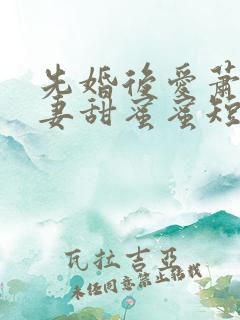 先婚後愛蕭
妻甜蜜蜜短
瓦拉吉亞
未经同意禁止转载